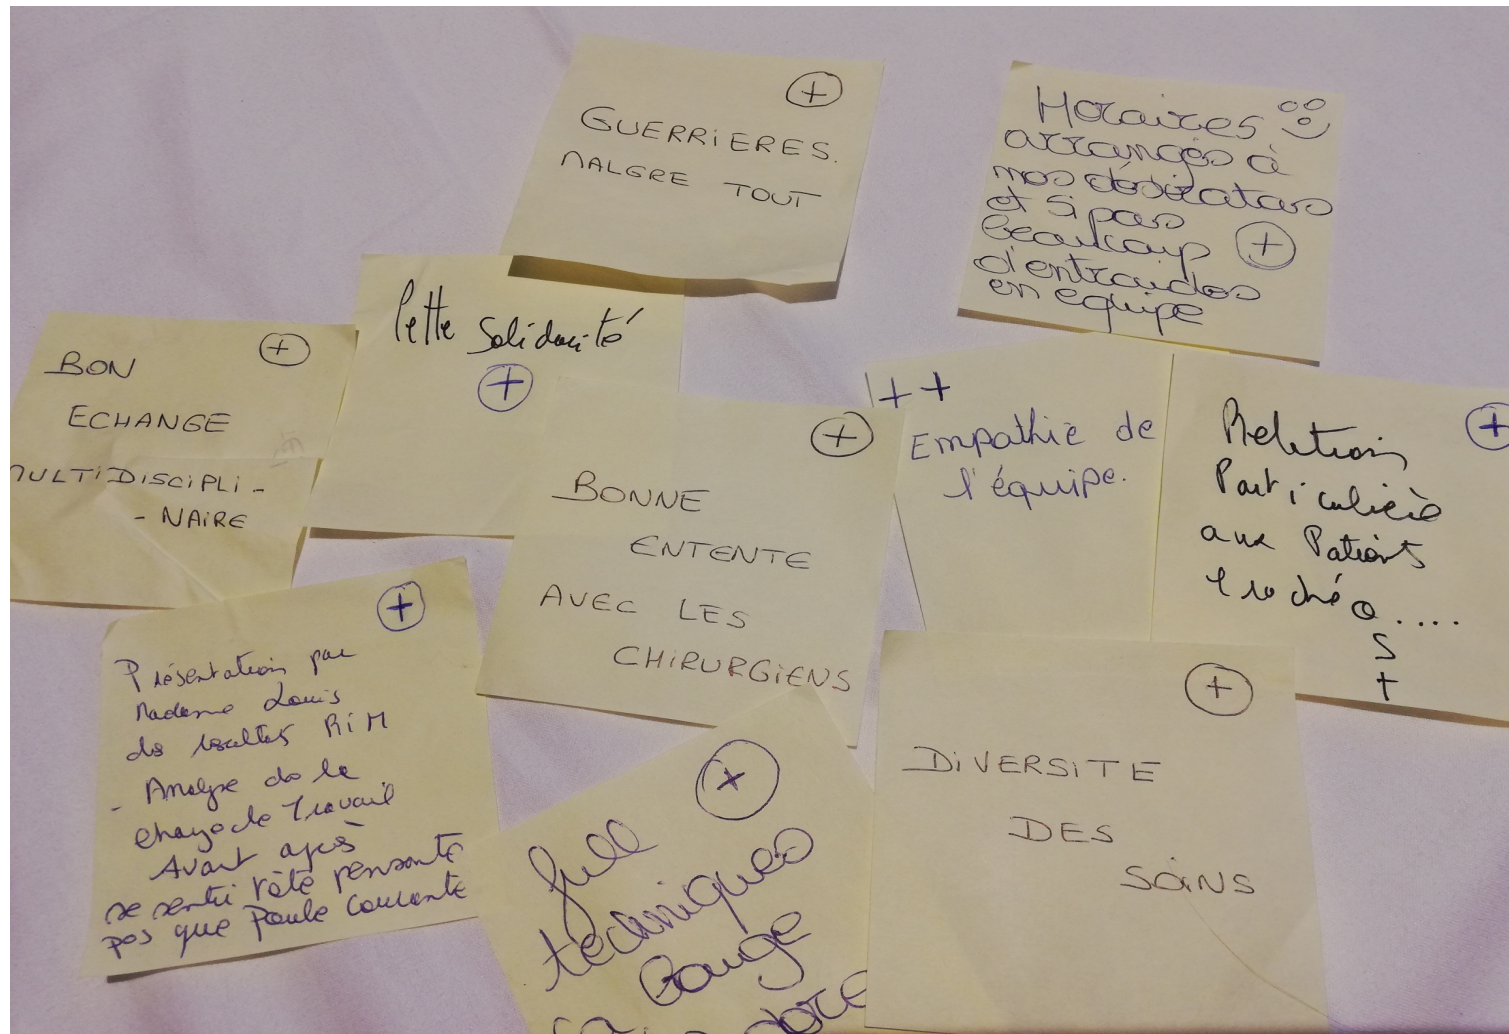 +
GUERRIERES.
MALGRE TOUT
Horaires
arrangés à
nos désidatas
et si pas
beaucoup +
d'entraides
en equipe
+
BON
ECHANGE
MULTIDISCIPLI -
- NAIRE
Cette solidarité
+
+
BONNE
ENTENTE
AVEC LES
CHIRURGIENS
++
Empathie de
l'équipe.
+
Relation
Particulière
aux Patients
trachéo....
S
t
+
Présentation par
Madame Louis
des résultats RIM
- Analyse de la
charge de travail
Avant après
se sentir tête pensante
pas que Poule Courante
+
full
techniques
ça bouge
+
DIVERSITE
DES
SOINS